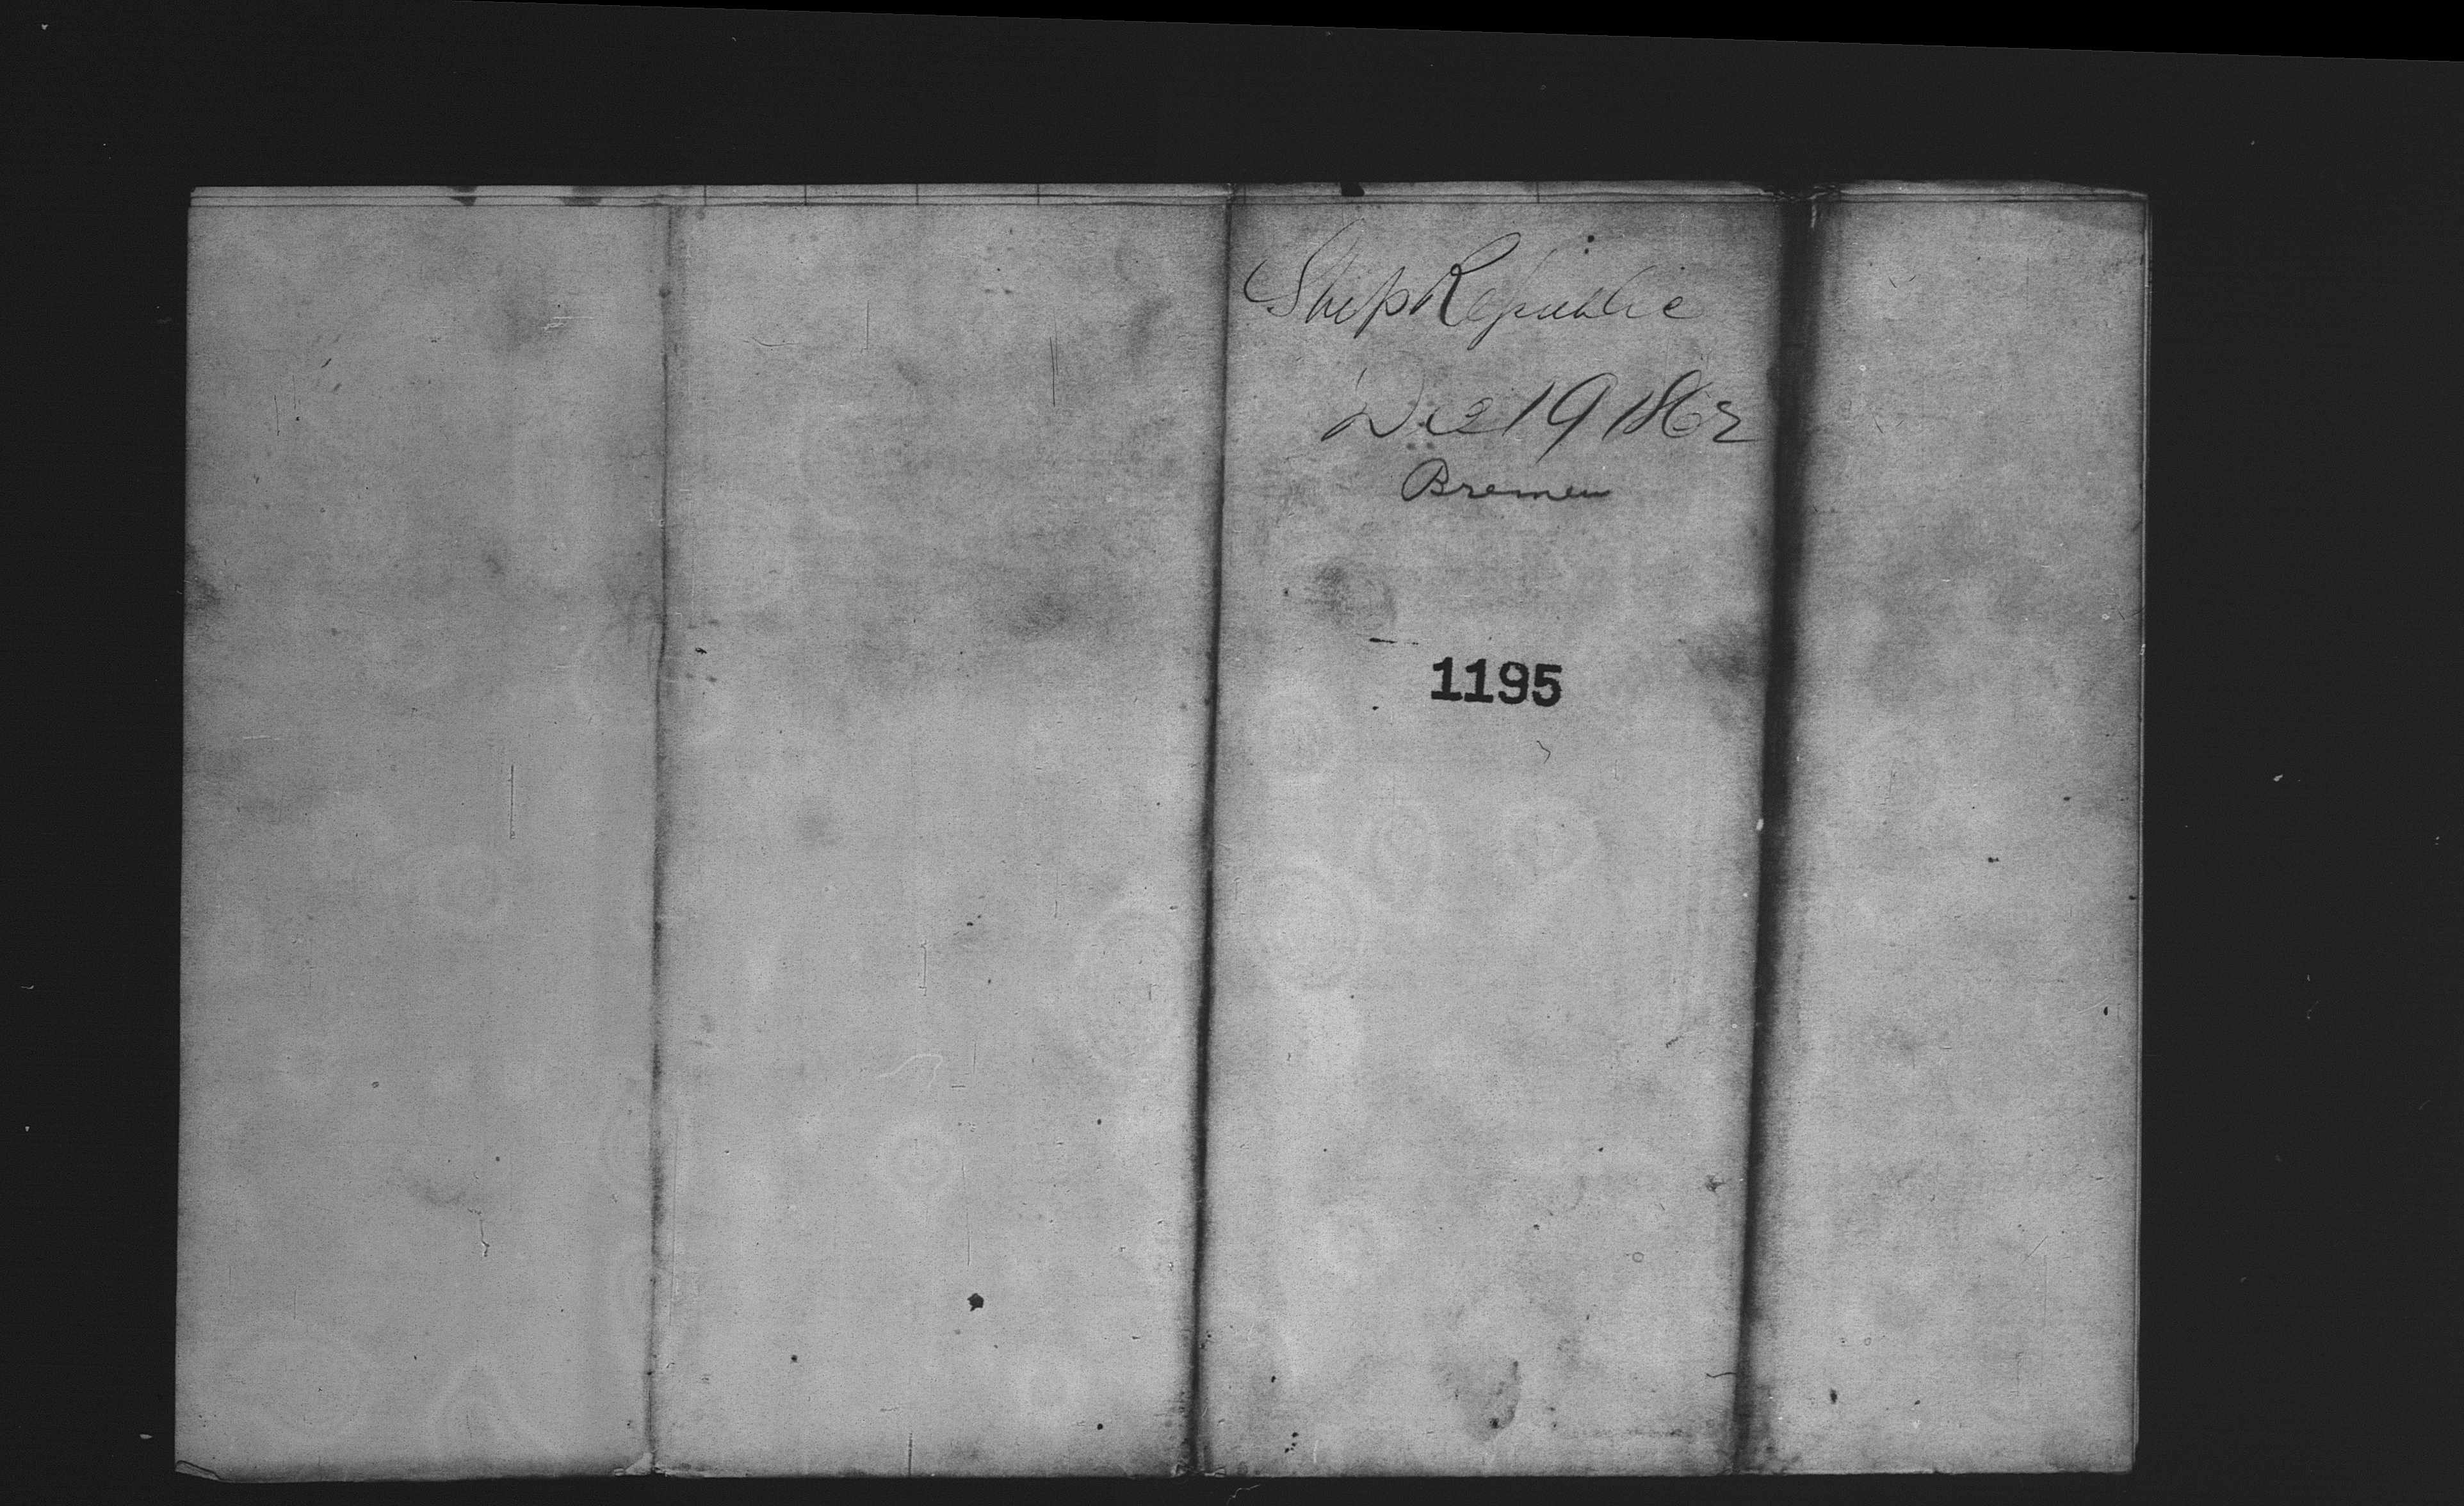 Ship Republic
Dec 19 1862
Bremen
1195